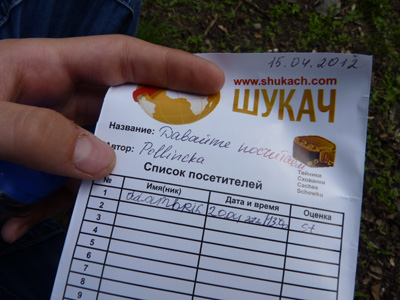 15.04.2012
www.shukach.com
ШУКАЧ
Название: Давайте посчитаем
Автор: Pollincka
Тайники
Схованки
Caches
Schowku
Список посетителей
№ Имя(ник) Дата и время Оценка
1
2
3
4
5
6
7
8
9